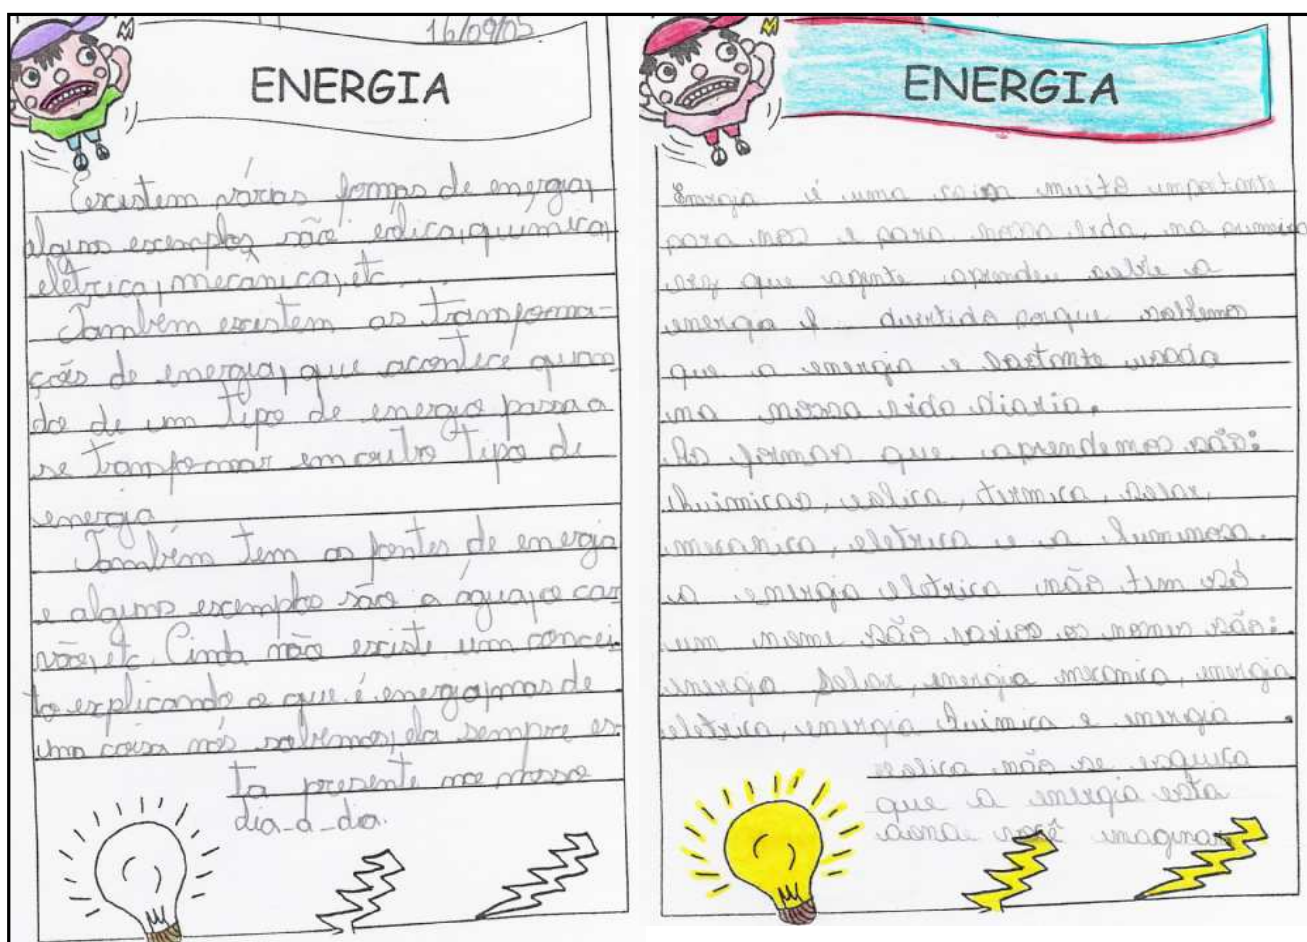 16/09/05
ENERGIA
Existem várias formas de energia,
alguns exemplos são eólica, química,
elétrica, mecânica, etc...
Também existem as transforma-
ções de energia, que acontece quan-
do de um tipo de energia passa a
se transformar em outro tipo de
energia.
Também tem as fontes de energia
e alguns exemplos são a água, o car
vão, etc. Ainda não existe um concei-
to explicando o que é energia, mas de
uma coisa nós sabemos, ela sempre es-
ta presente no nosso
dia-a-dia.
ENERGIA
Energia é uma coisa muito importante
para nos e para nossa vida, na primeira
vez que agente aprendeu sobre a
energia é divertido porque sabemos
que a energia e bastante usada
na nossa vida diaria.
As formas que aprendemos são:
Quimicas, eolica, termica, solar,
mecanica, eletrica e a luminosa.
a energia eletrica não tem só
um nome são varios os nomes são:
energia Solar, energia mecanica, energia
eletrica, energia Quimica e energia
eolica não se esqueça
que a energia esta
aonde você imaginar